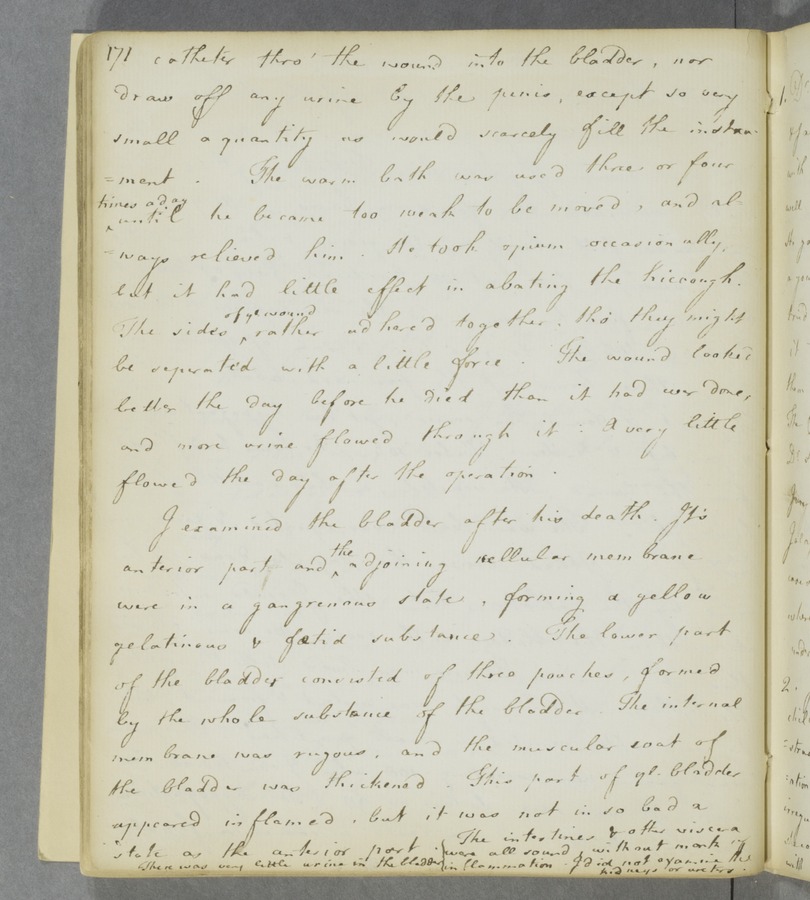 171 catheter thro' the wound into the bladder, nor
draw off any urine by the penis, except so very
small a quantity as would scarcely fill the instru-
=ment. The warm bath was used three or four
times a day
^until he became too weak to be moved, and al-
=ways relieved him. He took opium occasionally,
but it had little effect in abating the hiccough.
of ye wound
The sides ^ rather adhered together, tho' they might
be seperated with a little force. The wound looked
better the day before he died than it had ever done,
and more urine flowed through it: A very little
flowed the day after the operation.
I examined the bladder after his death. It's
the
anterior part and ^ adjoining cellular membrane
were in a gangrenous state, forming a yellow
gelatinous & fœtid substance. The lower part
of the bladder consisted of three pouches, formed
by the whole substance of the bladder. The internal
membrane was rugous, and the muscular coat of
the bladder was thickened. This part of ye bladder
appeared inflamed, but it was not in so bad a
state as the anterior part. The intestines & other viscera
were all sound, without mark of
There was very little urine in the bladder inflammation. I did not examine the
kidneys or ureters.